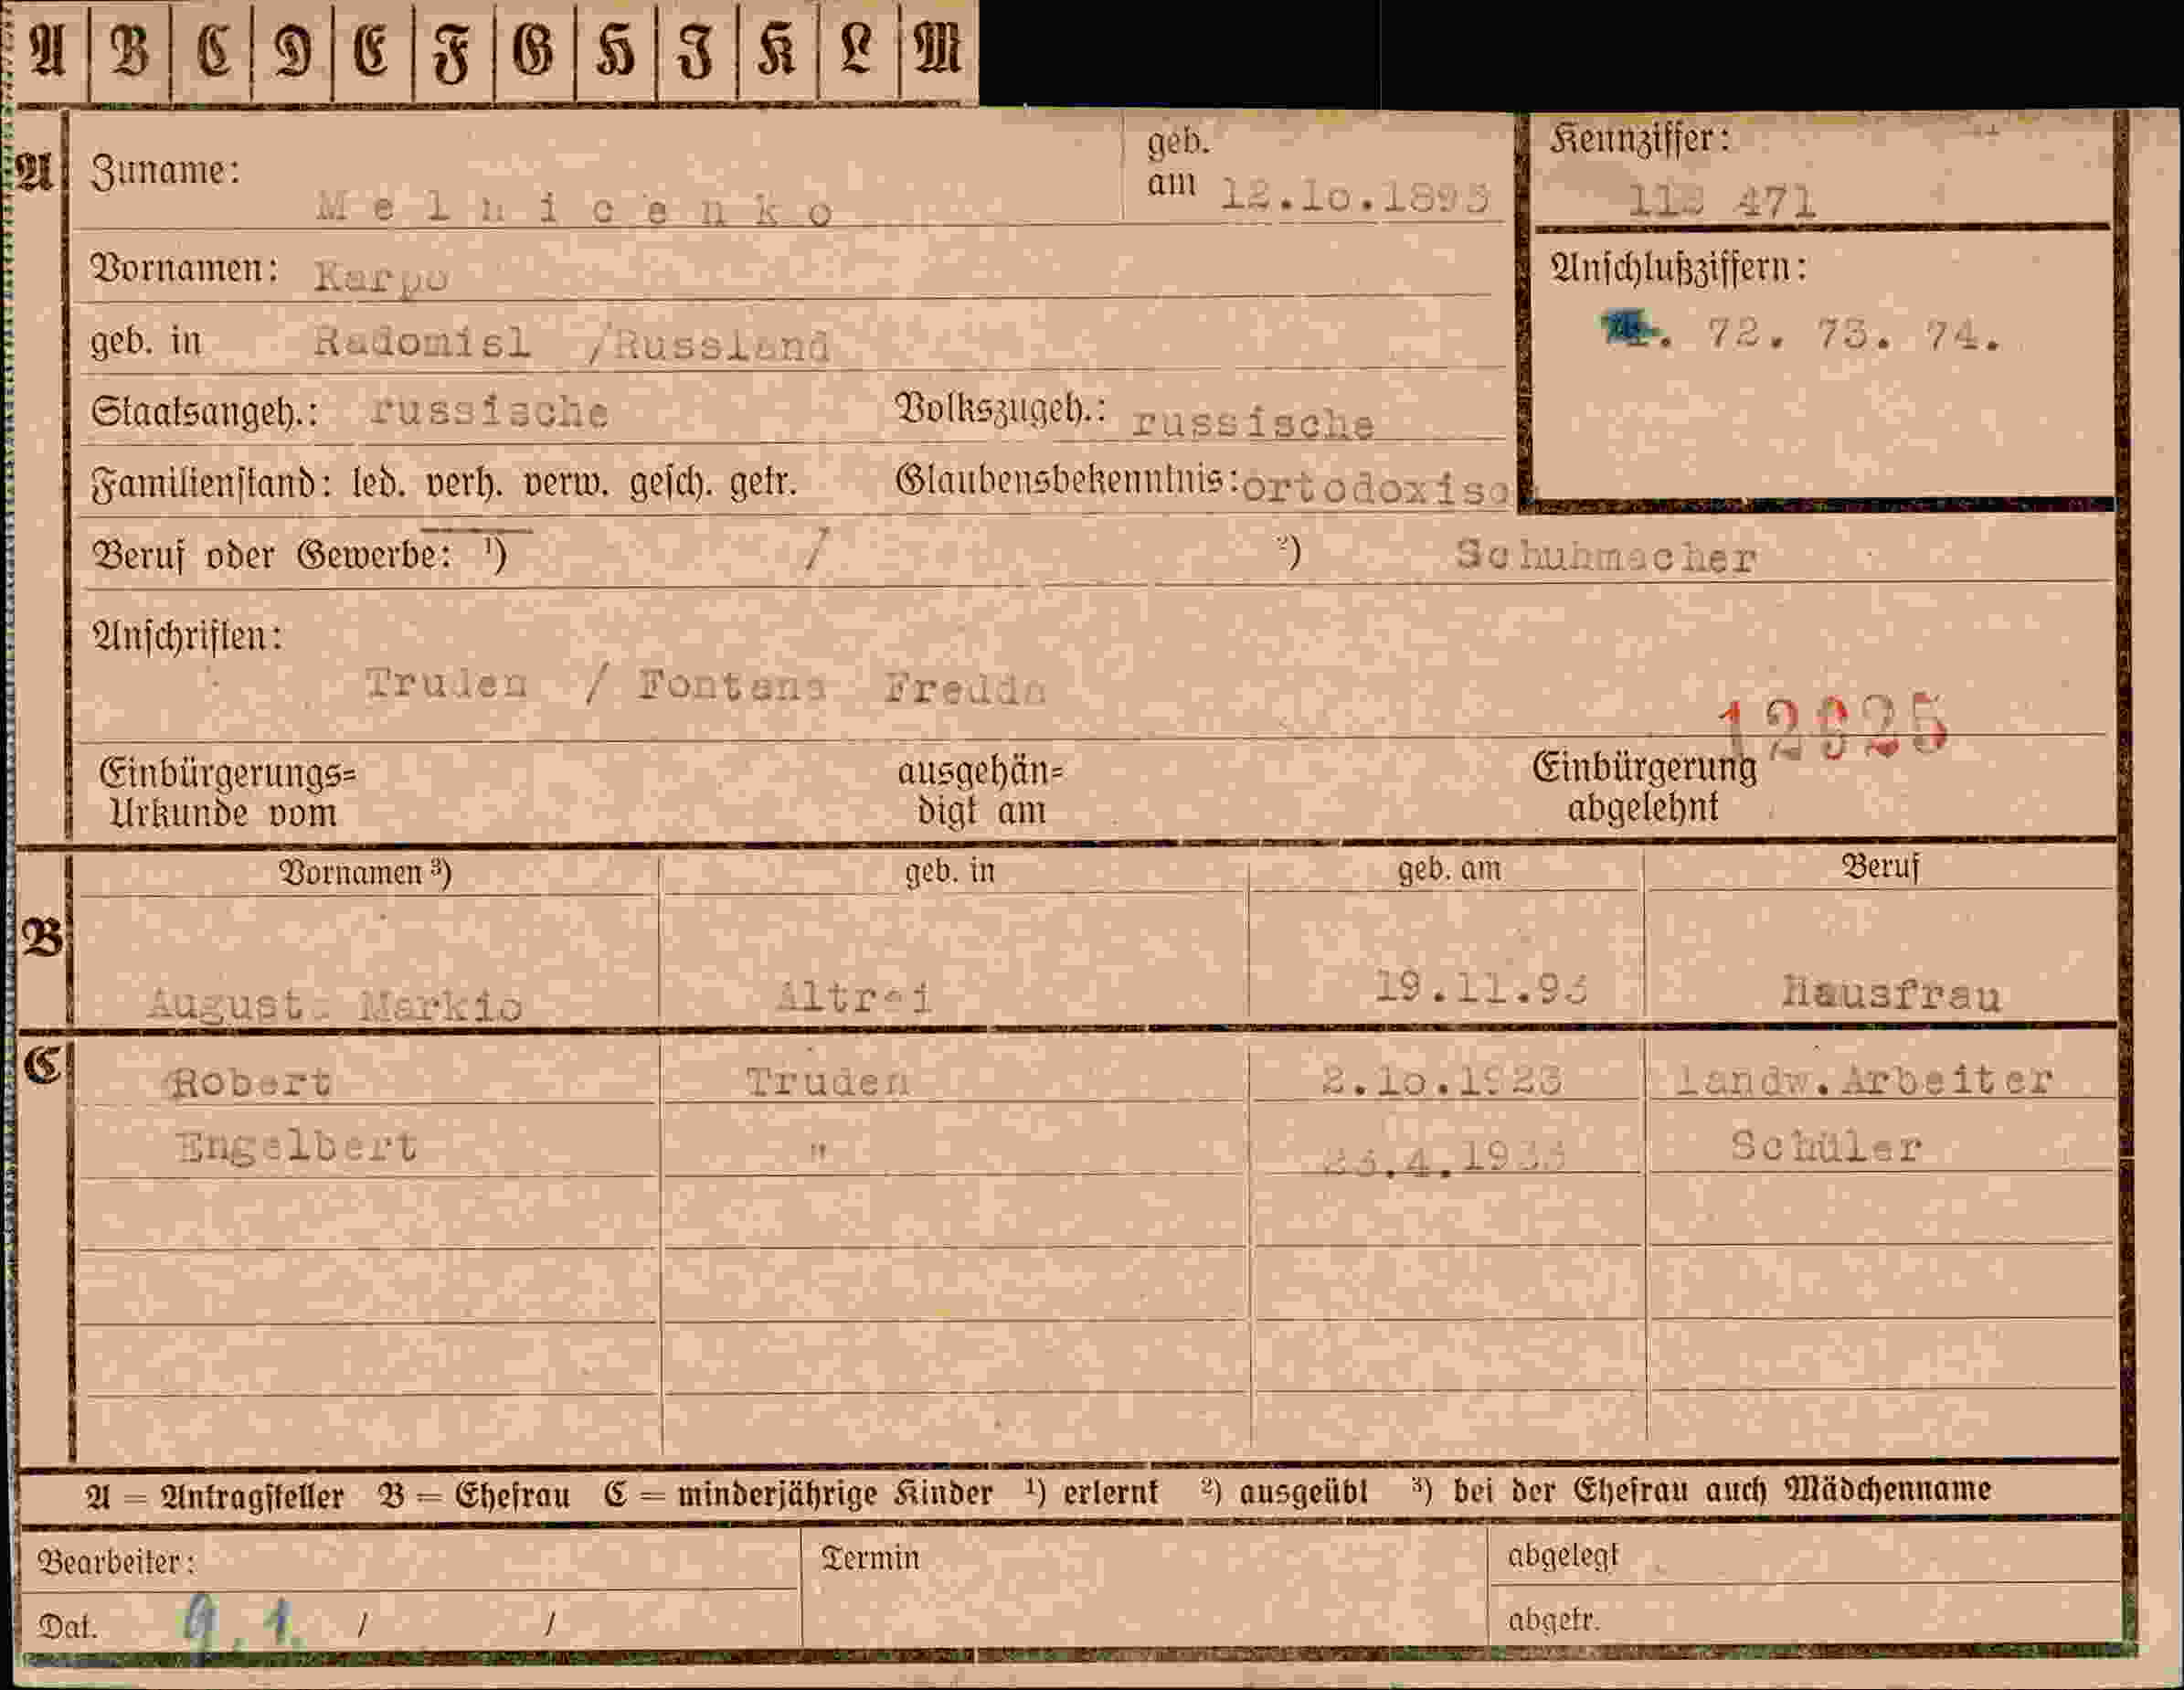 A B C D E F G H I K L M
A Zuname: Melnicenko geb. am 12.10.1893 Kennziffer: 471
Vornamen: Karpo
geb. in Radomisl /Russland Anschlußziffern: 72. 73. 74.
Staatsangeh.: russische Volkszugeh.: russische
Familienstand: led. verh. verw. gesch. getr. Glaubensbekenntnis: ortodoxisc
Beruf oder Gewerbe: ¹) / ²) Schuhmacher
Anschriften:
Truden / Fontana Fredda
Einbürgerungs= Urkunde vom ausgehän= digt am Einbürgerung abgelehnt
Vornamen ³) geb. in geb. am Beruf
B August. Markio Altrei Hausfrau
C Robert Truden Landw.Arbeiter
Engelbert " Schüler
A = Antragsteller B = Ehefrau C = minderjährige Kinder ¹) erlernt ²) ausgeübt ³) bei der Ehefrau auch Mädchenname
Bearbeiter: Termin abgelegt
Dat. 9. 1. / / abgetr.